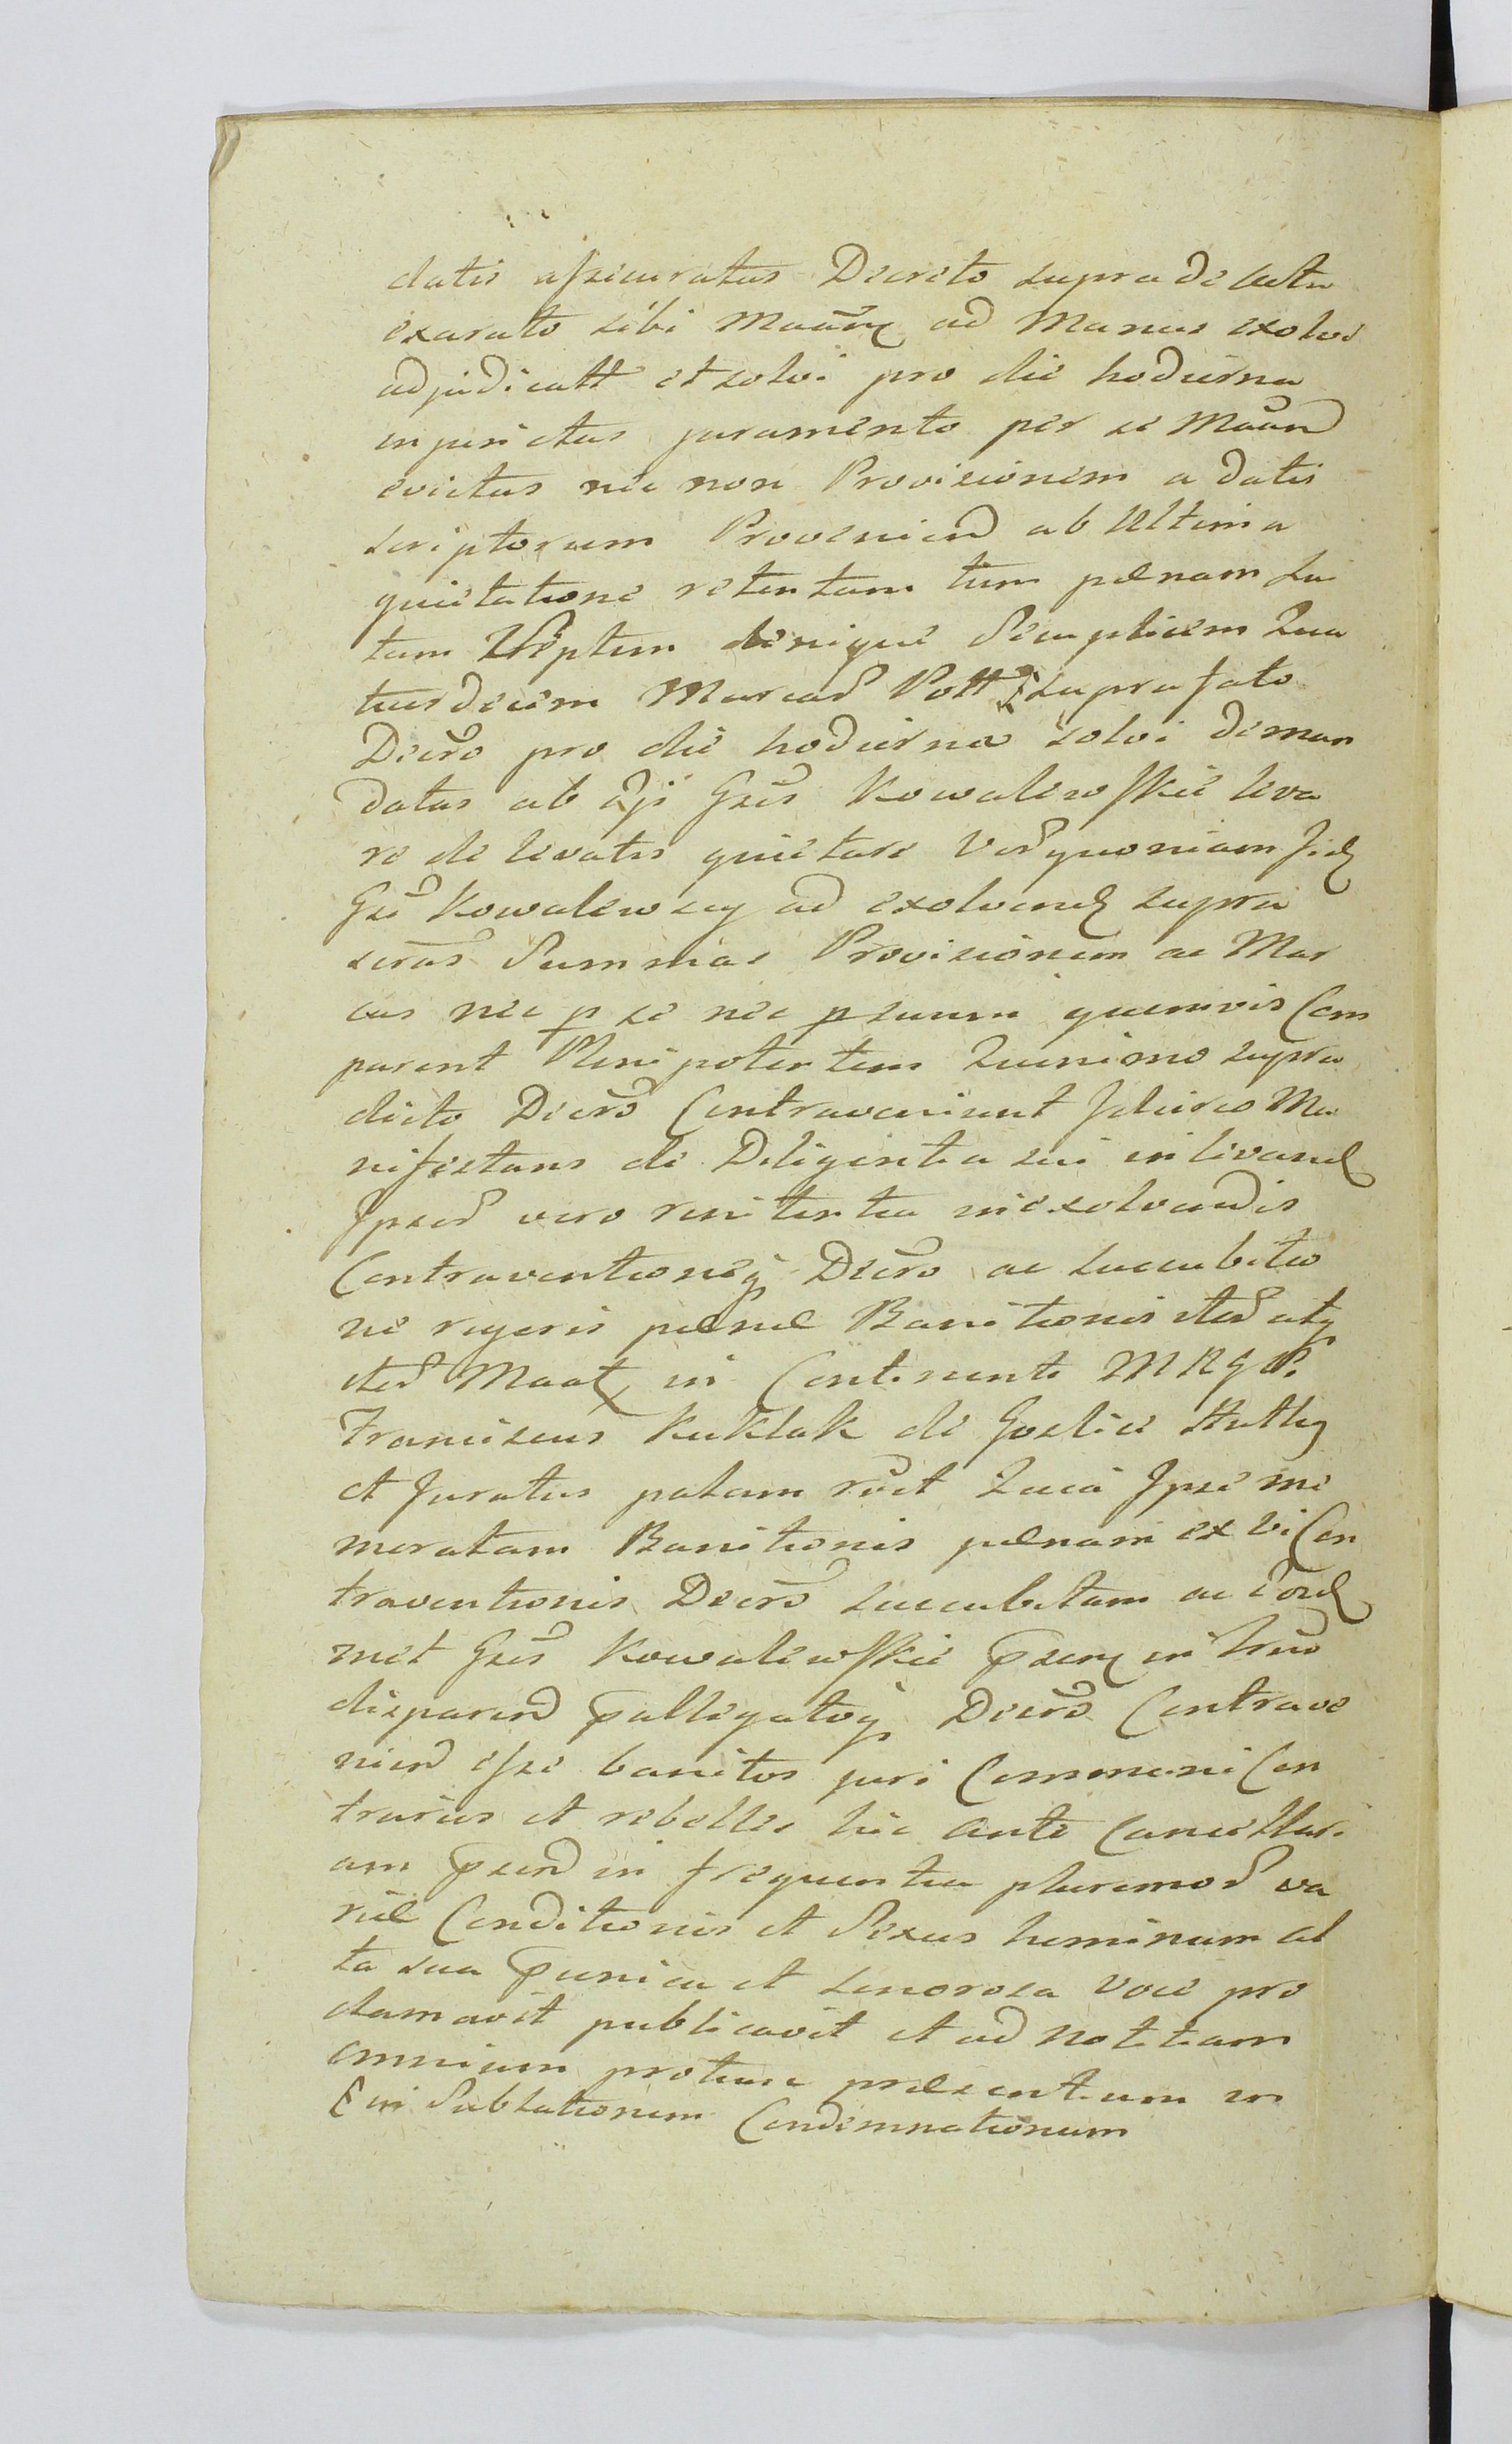 datis assecuratas Decreto supra de Actu
exarato sibi Maãnt ad Manus exolvi
adjudicatt et solvi pro die hodierna
injunctas juramento per se Maãn
evictas nec non Provisionem a datis
scriptorum Provenien ab Ultima
quietatione retentam tum pænam Lu
tam denique Simplicem Qua
tuordecim Marcar Pott suprafato
Decro pro die hodierna solvi deman
datas ab ijs Gsis Kowalewskie leva
re de levatis quietare Verquoniam Jid
Gsi Kowalewscy ad exolvend supra
scras Summas Provisionem ac Mar
cas nec p se nec p suum quemvis Com
parent Plenipotentem Quinimo supra
dicto Decro Contraveniunt Idcirco Ma
nifestans de Diligentia sui in levand
Ipsor vero renitentia in exolvendis
Contraventioneq Decro ac succubitio
ne rigoris pænæ Banitionis iter atq
iter Maat in Continenti MRGP.
Franciscus Kuklak de Goslice
et Juratus palam rcit Quia Ipse me
moratam Banitionis pænam ex vi Con
traventionis Decro succubitam ac eosd
met Gsis Kowalewskie in
disparen pallegatoq Decro Contrave
nien esse banitos juri Communi Con
trarios et rebelles hic ante Cancellari
am psen in frequentia plurimor va
riæ Conditionis et Sexus hominum al
ta sua et sonorosa voce pro
clamavit publicavit et ad nottiam
omnium protunc præsentium in
in Sublationem Condemnationum